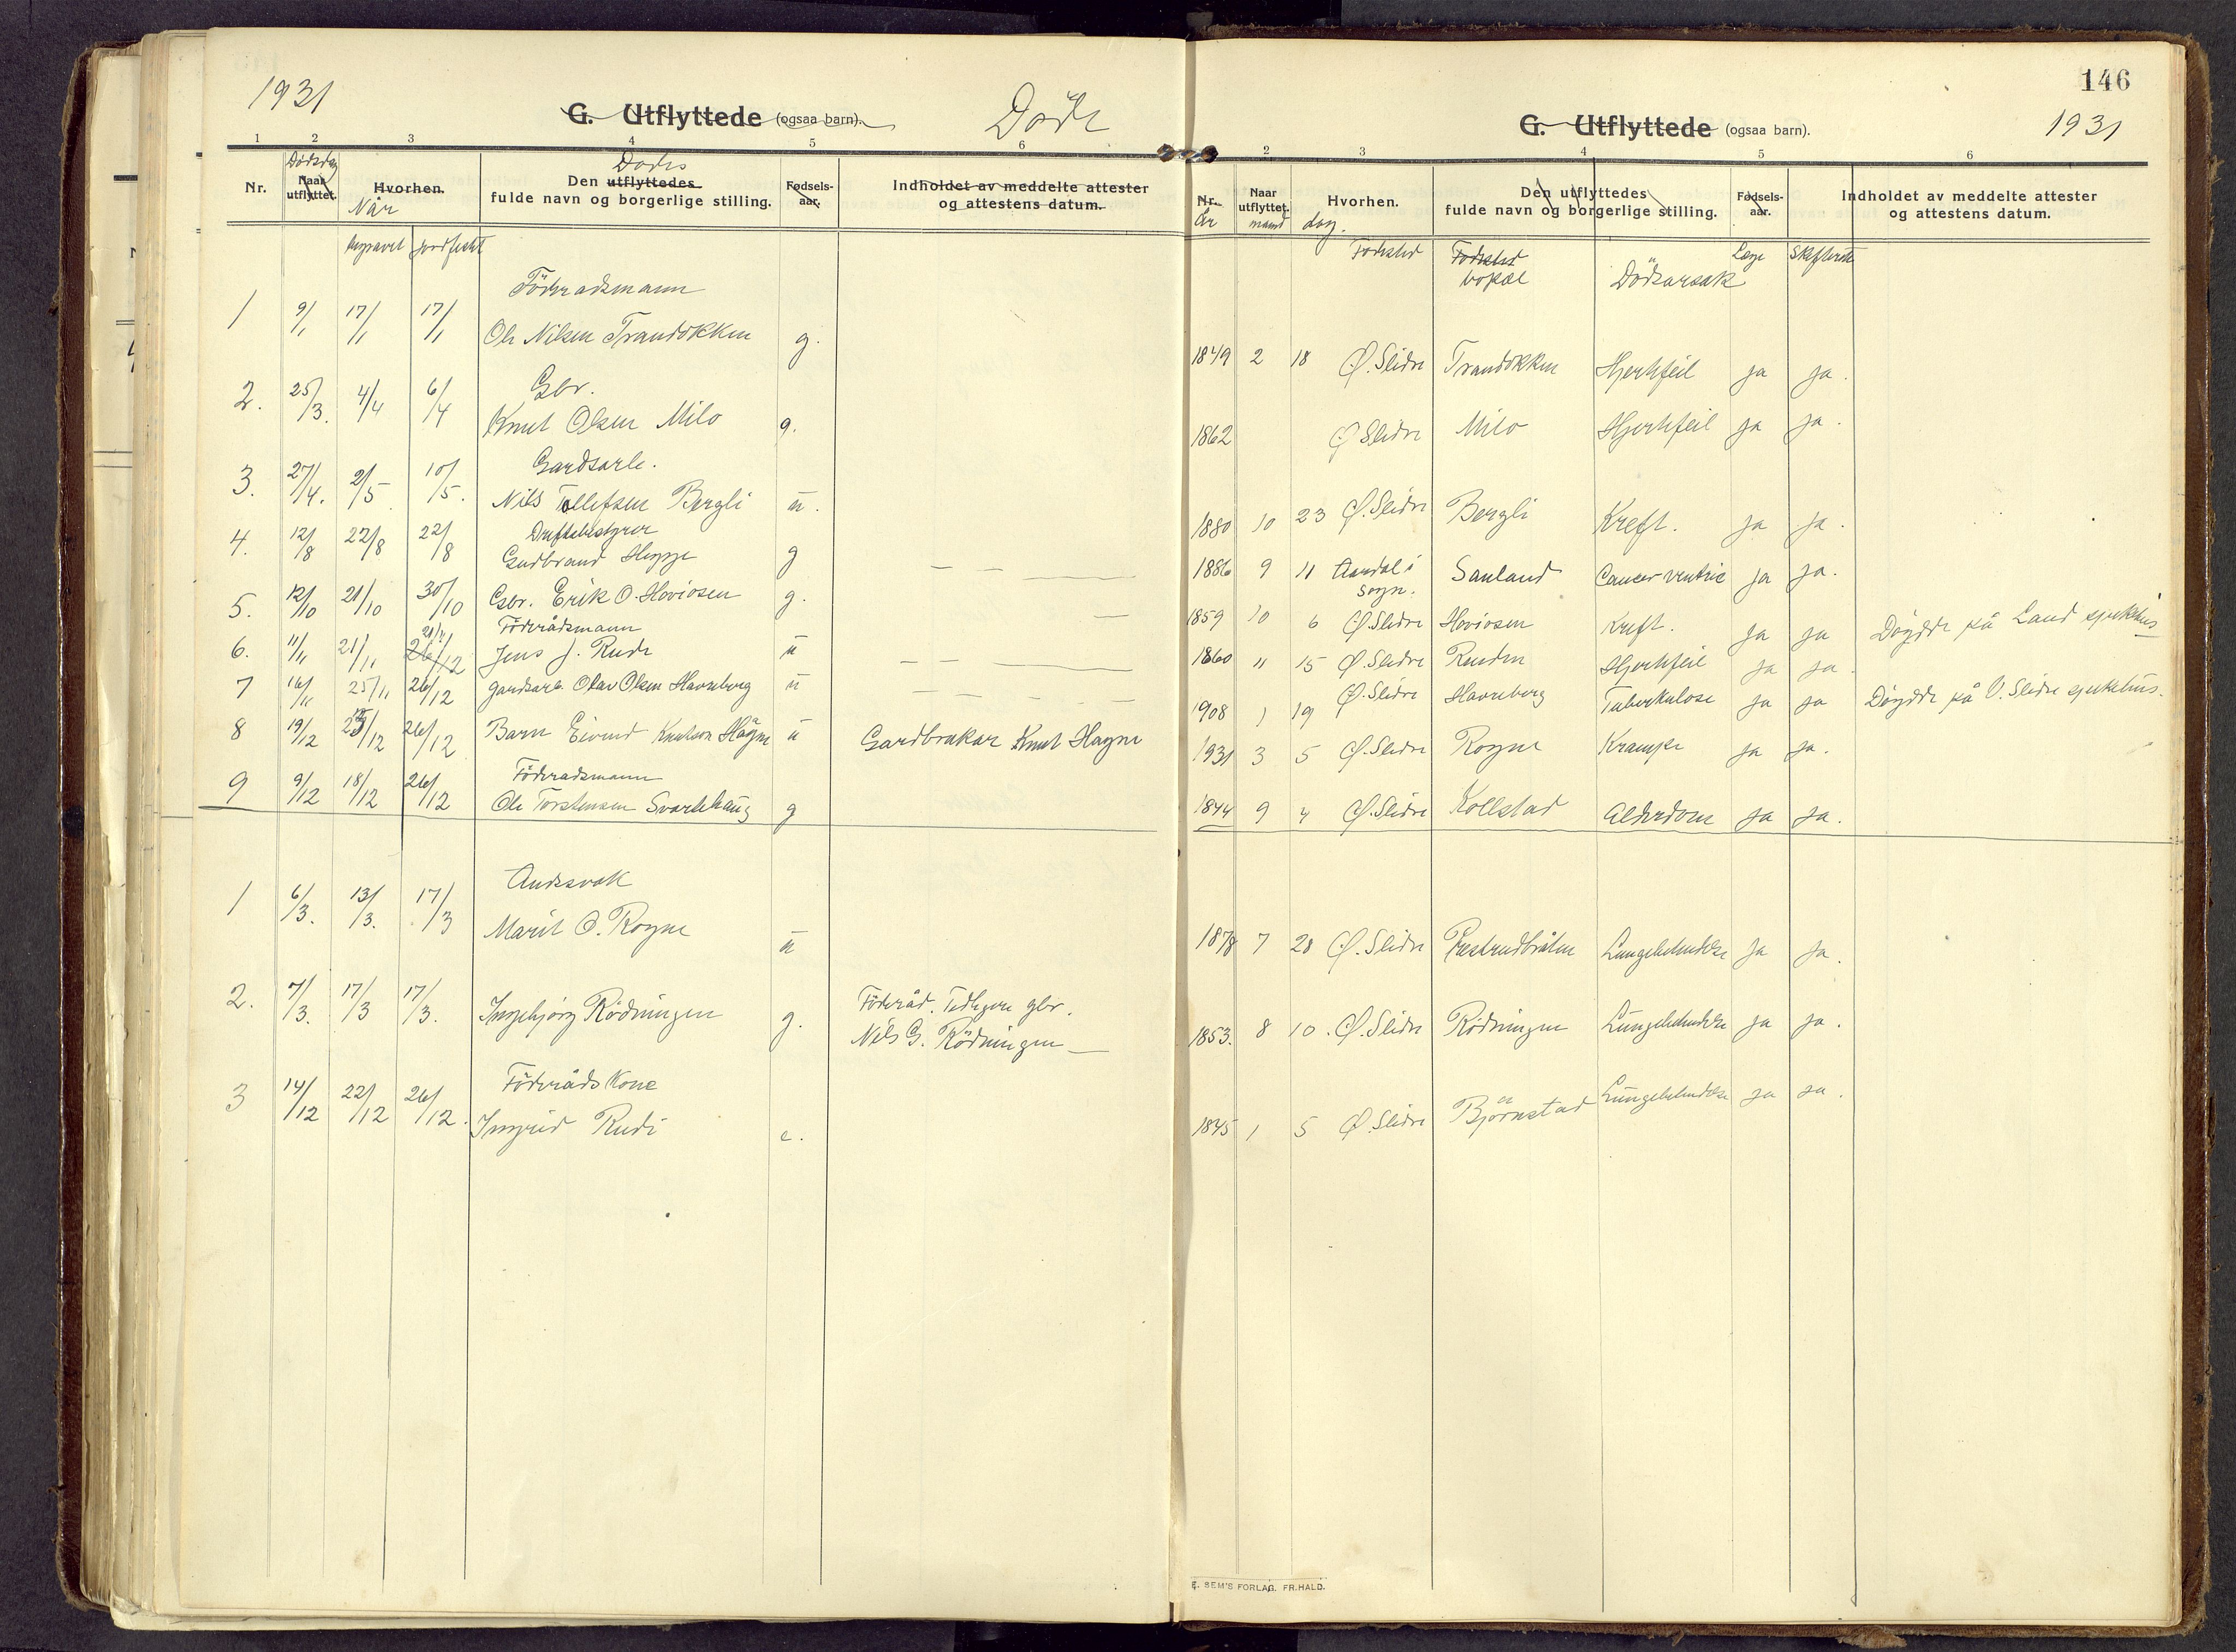 1931
G. Utflyttede (ogsaa barn). Döde
1 2 3 4 5 6
Nr. Dödsdag Naar utflyttet. Hvorhen. Når Den utflyttedes Dödes fulde navn og borgerlige stilling. Fødsels-aar. Indholdet av meddelte attester og attestens datum.
begravet jordfestet
Föderadsmann
1 9/1 17/1 17/1 Ole Nilsen Trandokken g.
Gbr.
2. 25/3. 4/4 6/4 Knut Olsen Milo g.
Gardsarb.
3. 27/4. 2/5 10/5. Nils Tollefsen Bergli u.
Driftsbestyrer
4. 12/8 22/8 22/8 Gudbrand Hegge g
5. 12/10 21/10 30/10 Gbr. Erik O. Höviosen g.
Föderådsmann
21/11
6. 11/11 21/11 26/12 Jens J. Rude u
7 16/11 25/11 26/12 gardsarb. Olav Olsen Havreberg u
8 19/12 23/12 26/12 Barn Eivind Knutson Hagne u Gardbrukar Knut Hagne
Föderadsmann
9 9/12 18/12 26/12 Ole Torstensen Svartehaug g
Andsvak
1 6/3. 13/3. 17/3 Marit O. Rogne u
2. 7/3. 17/3 17/3. Ingebjörg Rödningen g. Föderåd. Tidlegere gbr.
Nils G. Rödningen
Föderåds Kone
3 14/12 22/12 26/12. Ingrid Rudi e.
146
G. Utflyttede (ogsaa barn). 1931
2 3 4 5 6
Nr. År Naar utflyttet. maand Hvorhen. dag. Den utflyttedes fulde navn og borgerlige stilling. Fødsels-aar. Indholdet av meddelte attester og attestens datum.
Födested Födested bopæl Dödsarsak Læge Skifterett
1849 2 18 Ø. Slidre Trandokken Hjertefeil ja ja.
1862 Ø Slidre Milo Hjertefeil ja ja.
1880 10 23 Ø. Slidre Bergli Kreft. ja ja.
1886 9 11 Aardal i Sogn. Sanland Cancer ventric ja ja.
1859 10 6 Ø. Slidre Höviosen Kreft. ja ja Döydde på Land sjukehus
1860 11 15 Ø. Slidre Ruden Hjertefeil ja ja.
1908 1 19 Ø. Slidre Havreberg Tuberkulose ja ja Döydde på V. Slidre sjukehus.
1931 3 5 Ø. Slidre Rogne Krampe ja ja.
1844 9 4 Ø. Slidre Kollstad Alderdom ja ja.
1878 7 28 Ø. Slidre Lungebetendelse ja ja.
1853. 8 10. Ø. Slidre Rödningen Lungebetendelse ja ja.
1845 1 5 Ø. Slidre Björnstad Lungebetendelse ja ja.
E. SEM'S FORLAG. FR.HALD.